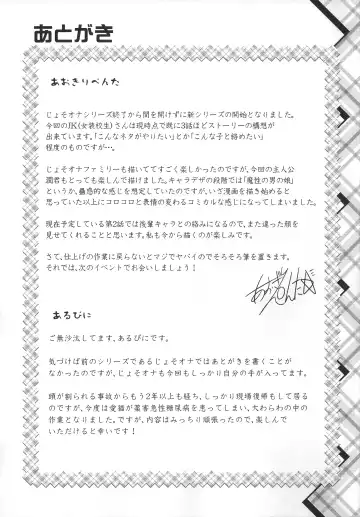 あとがき
あおきりぺんた
じょそオナシリーズ終了から間を開けずに新シリーズの開始となりました。
今回のJK(女装校生)さんは現時点で既に3話ほどストーリーの構想が
出来ています。「こんなネタがやりたい」とか「こんな子と絡めたい」
程度のものですが…。
じょそオナファミリーも描いててすごく楽しかったのですが、今回の主人公
潤君もとっても楽しんで描けました。キャラデザの段階では「魔性の男の娘」
というか、蠱惑的な感じを想定していたのですが、いざ漫画を描き始めると
思っていた以上にコロコロと表情の変わるコミカルな感じになってしまいました。
現在予定している第2話では後輩キャラとの絡みになるので、また違った顔を
見せてくれることと思います。私も今から描くのが楽しみです。
さて、仕上げの作業に戻らないとマジでヤバイのでそろそろ筆を置きます。
それでは、次のイベントでお会いしましょう!
あるぴに
ご無沙汰してます、あるぴにです。
気づけば前のシリーズであるじょそオナではあとがきを書くことが
なかったのですが、じょそオナも今回もしっかり自分の手が入ってます。
頭が割られる事故からもう2年以上も経ち、しっかり現場復帰もして居る
のですが、今度は愛猫が薬害急性糖尿病を患ってしまい、大わらわの中の
作業となりました。ですが、内容はみっちり頑張ったので、楽しんで
いただけると幸いです!